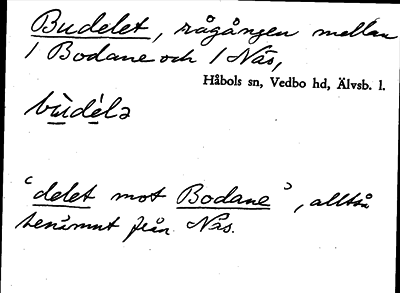 Budelet, rågången mellan
1 Bodane och 1 Näs,
Håbols sn, Vedbo hd, Älvsb. l.
bù̱dé̱lə
"delet mot Bodane", alltså
benämnt från Näs.